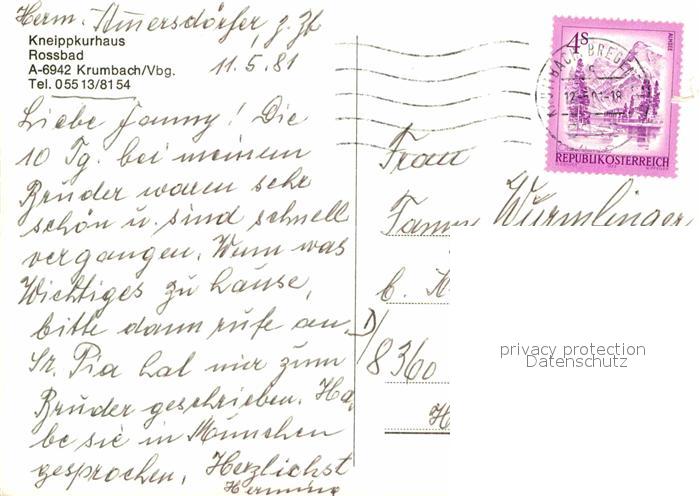 Herm. Amersdörfer, z. Zt.
Kneippkurhaus
Rossbad
A-6942 Krumbach/Vbg.
Tel. 05513/8154
11.5.81
Liebe Fanny! Die
10 Tg. bei meinem
Bruder waren sehr
schön u. sind schnell
vergangen. Wenn was
Wichtiges zu Hause,
bitte dann rufe an.
Sr. Pia hat mir zum
Bruder geschrieben. Ha
be sie in München
gesprochen. Herzlichst
Hermine
4S
ALMSEE
REPUBLIK ÖSTERREICH
Frau
Fanny Wurmlinger
b.
D/
8360
privacy protection
Datenschutz